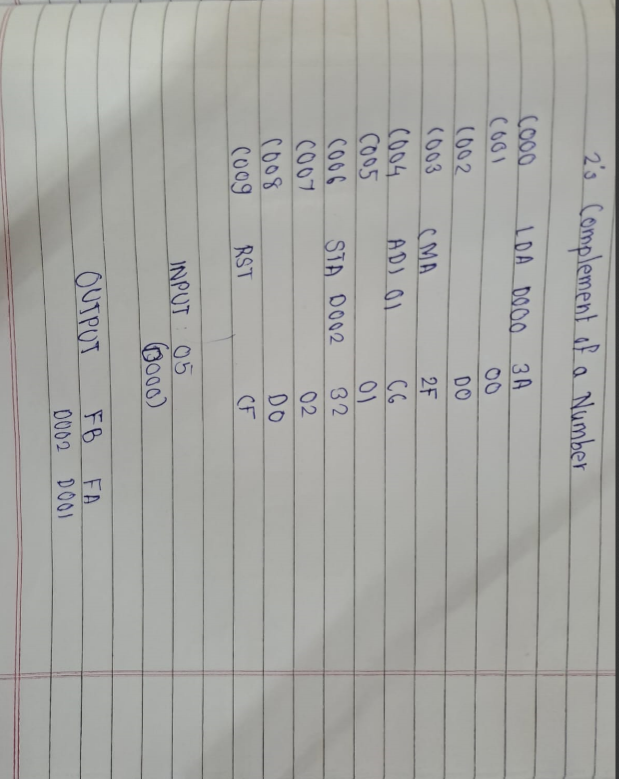 2's Complement of a Number
C000 LDA D000 3A
C001 00
C002 D0
C003 CMA 2F
C004 ADI 01 C6
C005 01
C006 STA D002 32
C007 02
C008 D0
C009 RST CF
INPUT : 05
(D000)
OUTPUT FB FA
D002 D001